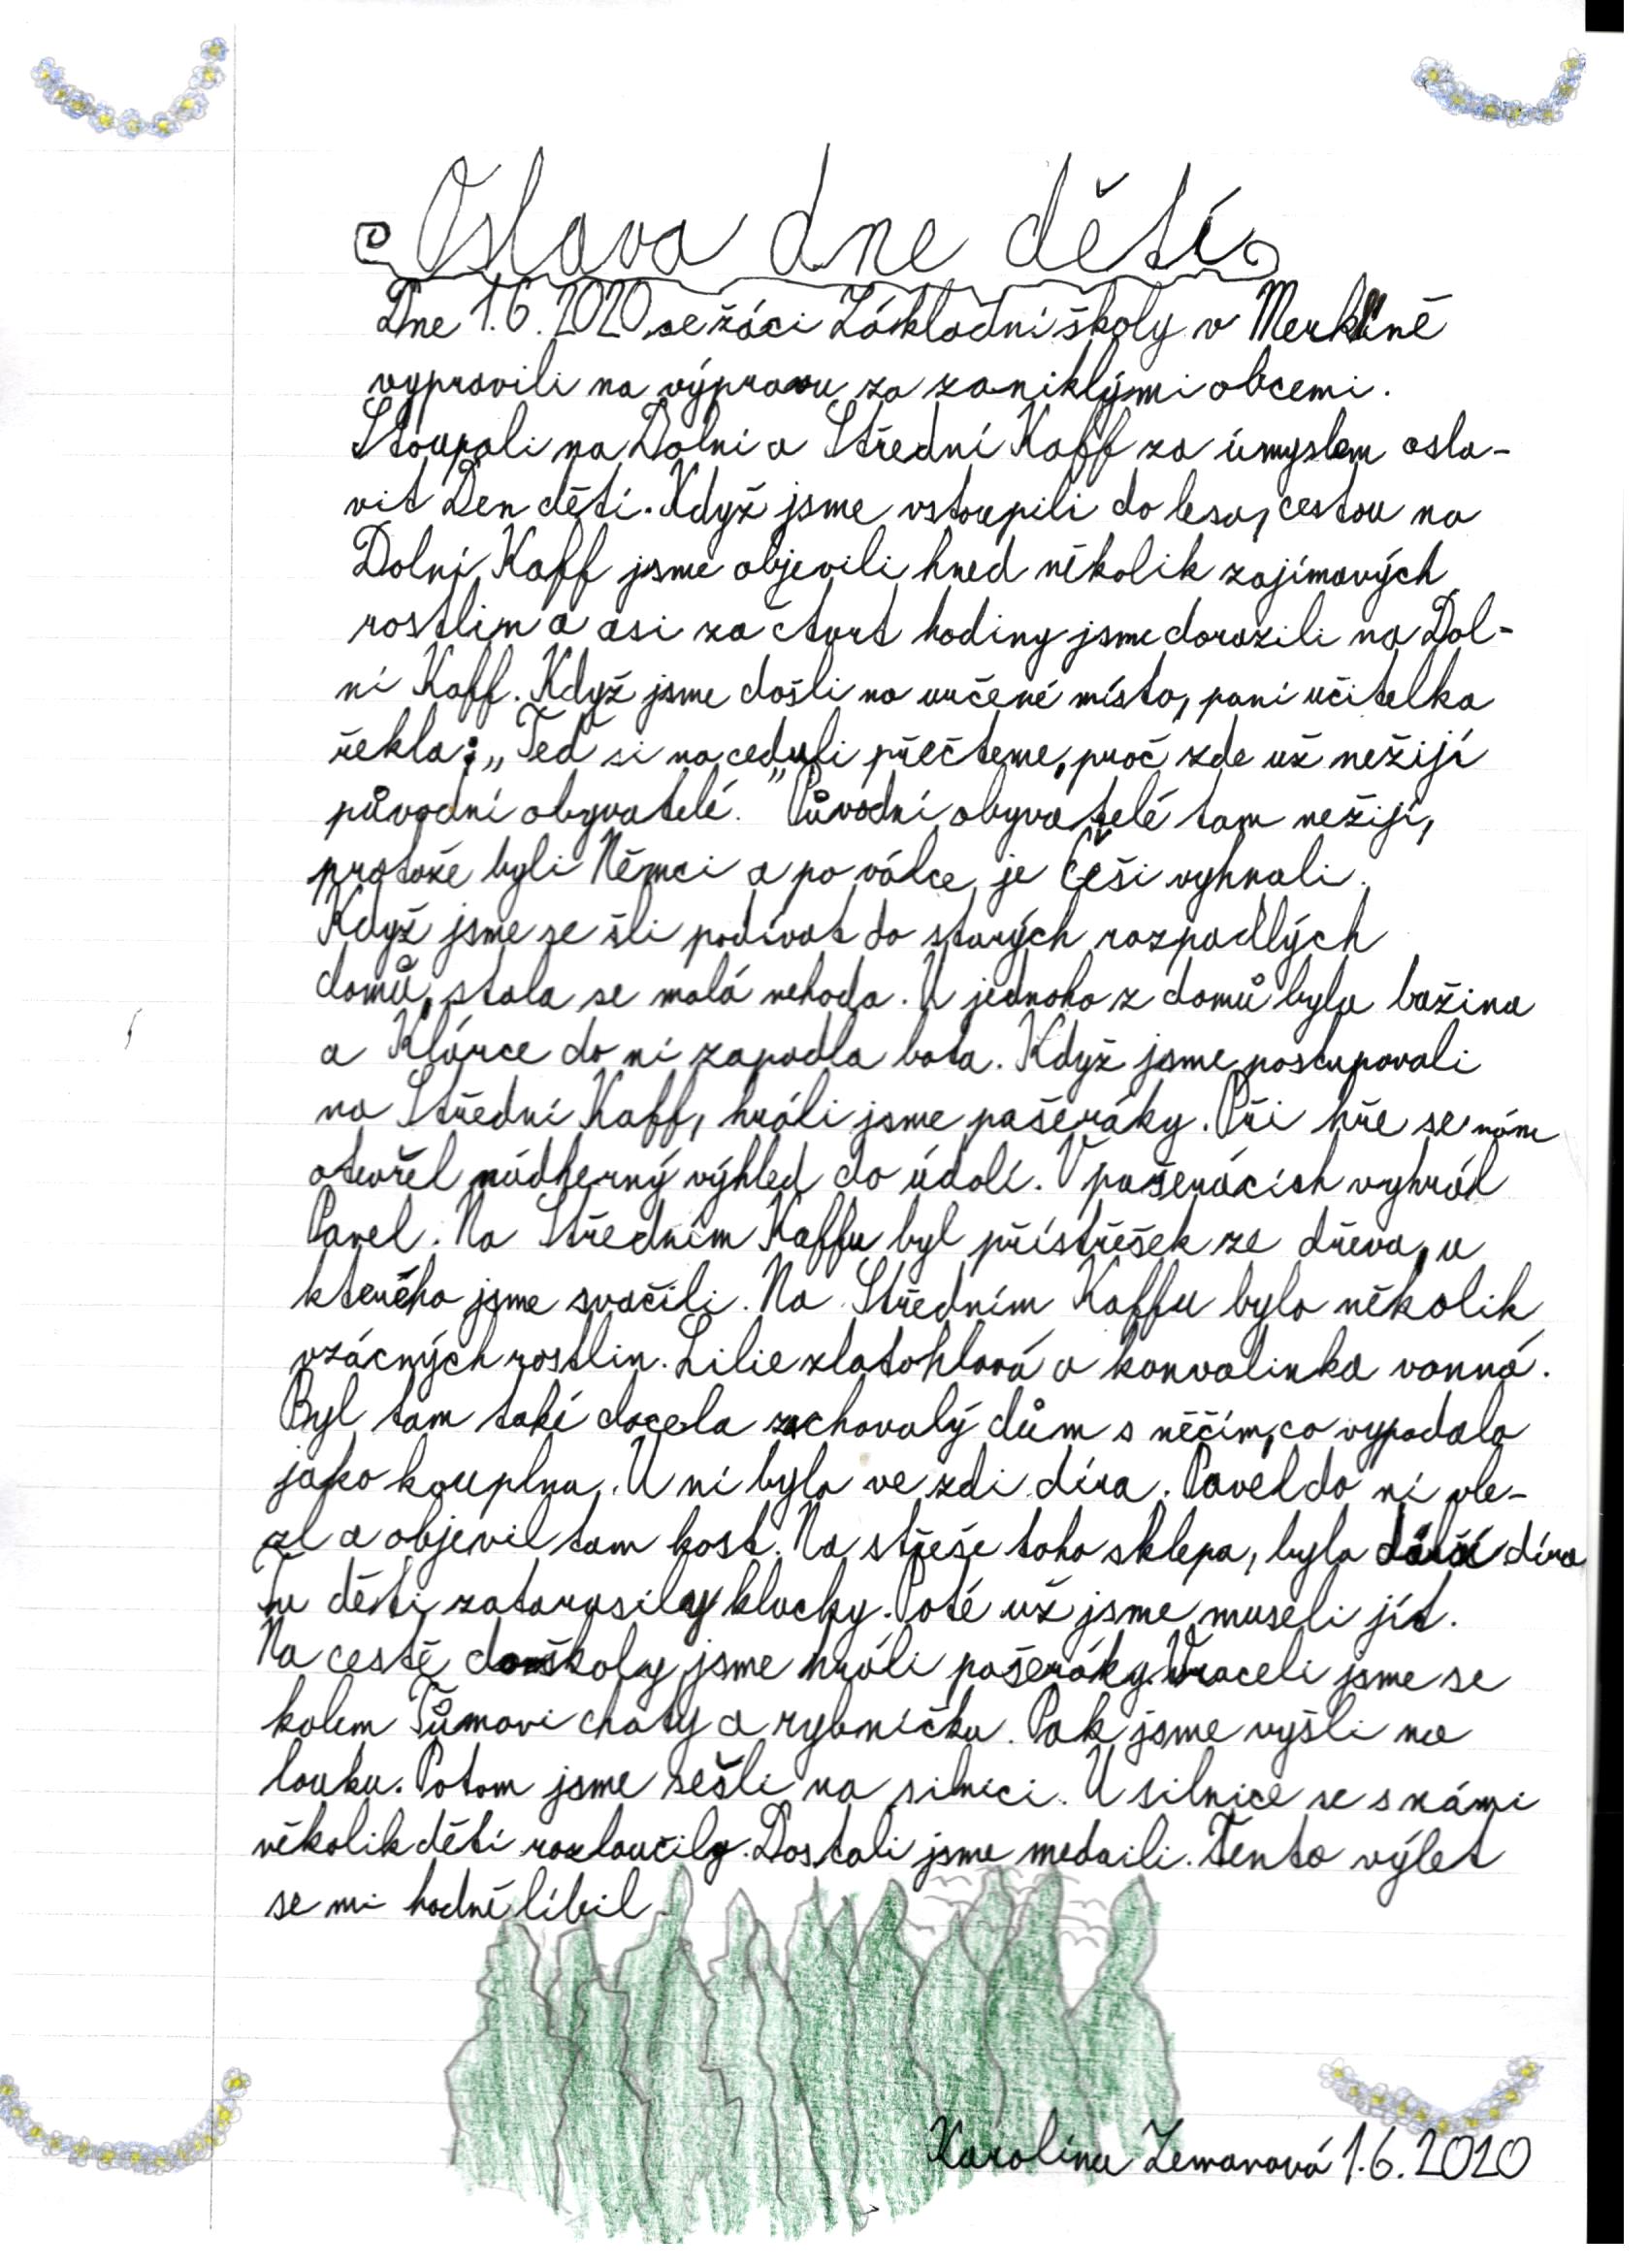 Oslava dne dětí
Dne 1.6.2020 se žáci Základní školy v Merklíně
vypravili na výpravu za zaniklými obcemi.
Stoupali na Dolní a Střední Kaff za úmyslem osla-
vit Den dětí. Když jsme vstoupili do lesa, cestou na
Dolní Kaff jsme objevili hned několik zajímavých
rostlin a asi za čtvrt hodiny jsme dorazili na Dol-
ní Kaff. Když jsme došli na určené místo, paní učitelka
řekla: „Teď si na ceduli přečteme, proč zde už nežijí
původní obyvatelé." Původní obyvatelé tam nežijí,
protože byli Němci a po válce je Češi vyhnali.
Když jsme se šli podívat do starých rozpadlých
domů, stala se malá nehoda. U jednoho z domů byla bažina
a Klárce do ní zapadla bota. Když jsme postupovali
na Střední Kaff, hráli jsme pašeráky. Při hře se nám
otevřel nádherný výhled do údolí. V pašerácích vyhrál
Pavel. Na Středním Kaffu byl přístřešek ze dřeva, u
kterého jsme svačili. Na Středním Kaffu bylo několik
vzácných rostlin. Lilie zlatohlavá a konvalinka vonná.
Byl tam také docela zachovalý dům s něčím, co vypadalo
jako kouplna. U ní byla ve zdi díra. Pavel do ní vle-
zl a objevil tam kost. Na střeše toho sklepa, byla další díra
Tu děti zatarasily klacky. Poté už jsme museli jít.
Na cestě do školy jsme hráli pašeráky. Vraceli jsme se
kolem Tůmovi chaty a rybníčku. Pak jsme vyšli na
louku. Potom jsme sešli na silnici. U silnice se s námi
několik dětí rozloučily. Dostali jsme medaili. Tento výlet
se mi hodně líbil.
Karolína Zemanová 1.6.2020